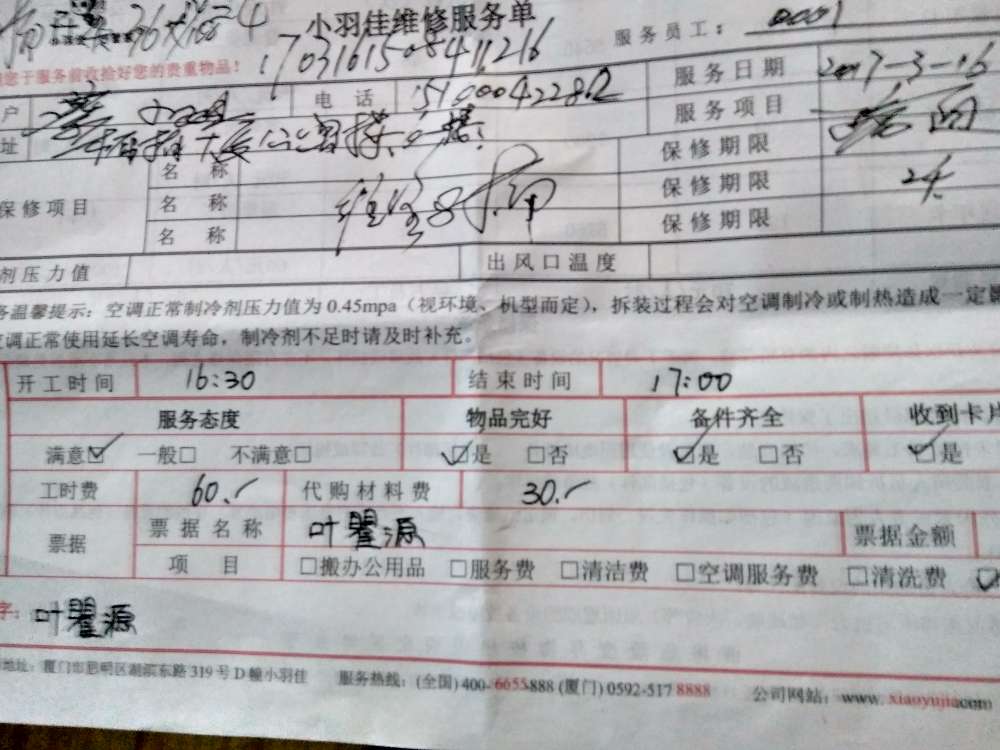 小羽佳维修服务单
服务员工：0001
您于服务前收拾好您的贵重物品！
1703161505411216
户 电 话 服务日期 2017-3-16
址 服务项目
保修项目 名 称 保修期限
名 称 保修期限
名 称 保修期限
剂压力值 出风口温度
温馨提示：空调正常制冷剂压力值为 0.45mpa（视环境、机型而定），拆装过程会对空调制冷或制热造成一定
调正常使用延长空调寿命，制冷剂不足时请及时补充。
开工时间 16:30 结束时间 17:00
服务态度 物品完好 备件齐全 收到卡片
满意☑ 一般□ 不满意□ ☑是 □否 ☑是 □否 ☑是
工时费 60.- 代购材料费 30.-
票据 票据名称 叶瞿源 票据金额
项 目 □搬办公用品 □服务费 □清洁费 □空调服务费 □清洗费
字：叶瞿源
地址：厦门市思明区湖滨东路 319 号 D 幢小羽佳 服务热线：(全国) 400-6655-888 (厦门) 0592-517 8888 公司网站：www.xiaoyujia.com